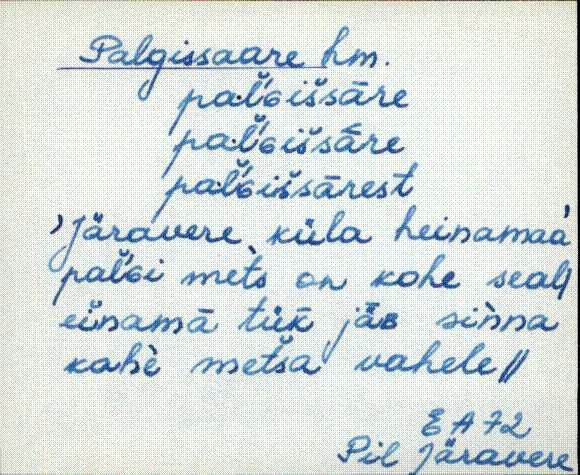 Palgissaare hm.
pal̆ɢišsāre
pal̆ɢišsāre
pal̆ɢišsārest
'Järavere küla heinamaa'
pal̆ɢi mets̀ on kohe seal/
einamā tük̆ jäʙ siǹna
kahè metša vahele //
EA 72
Pil Järavere